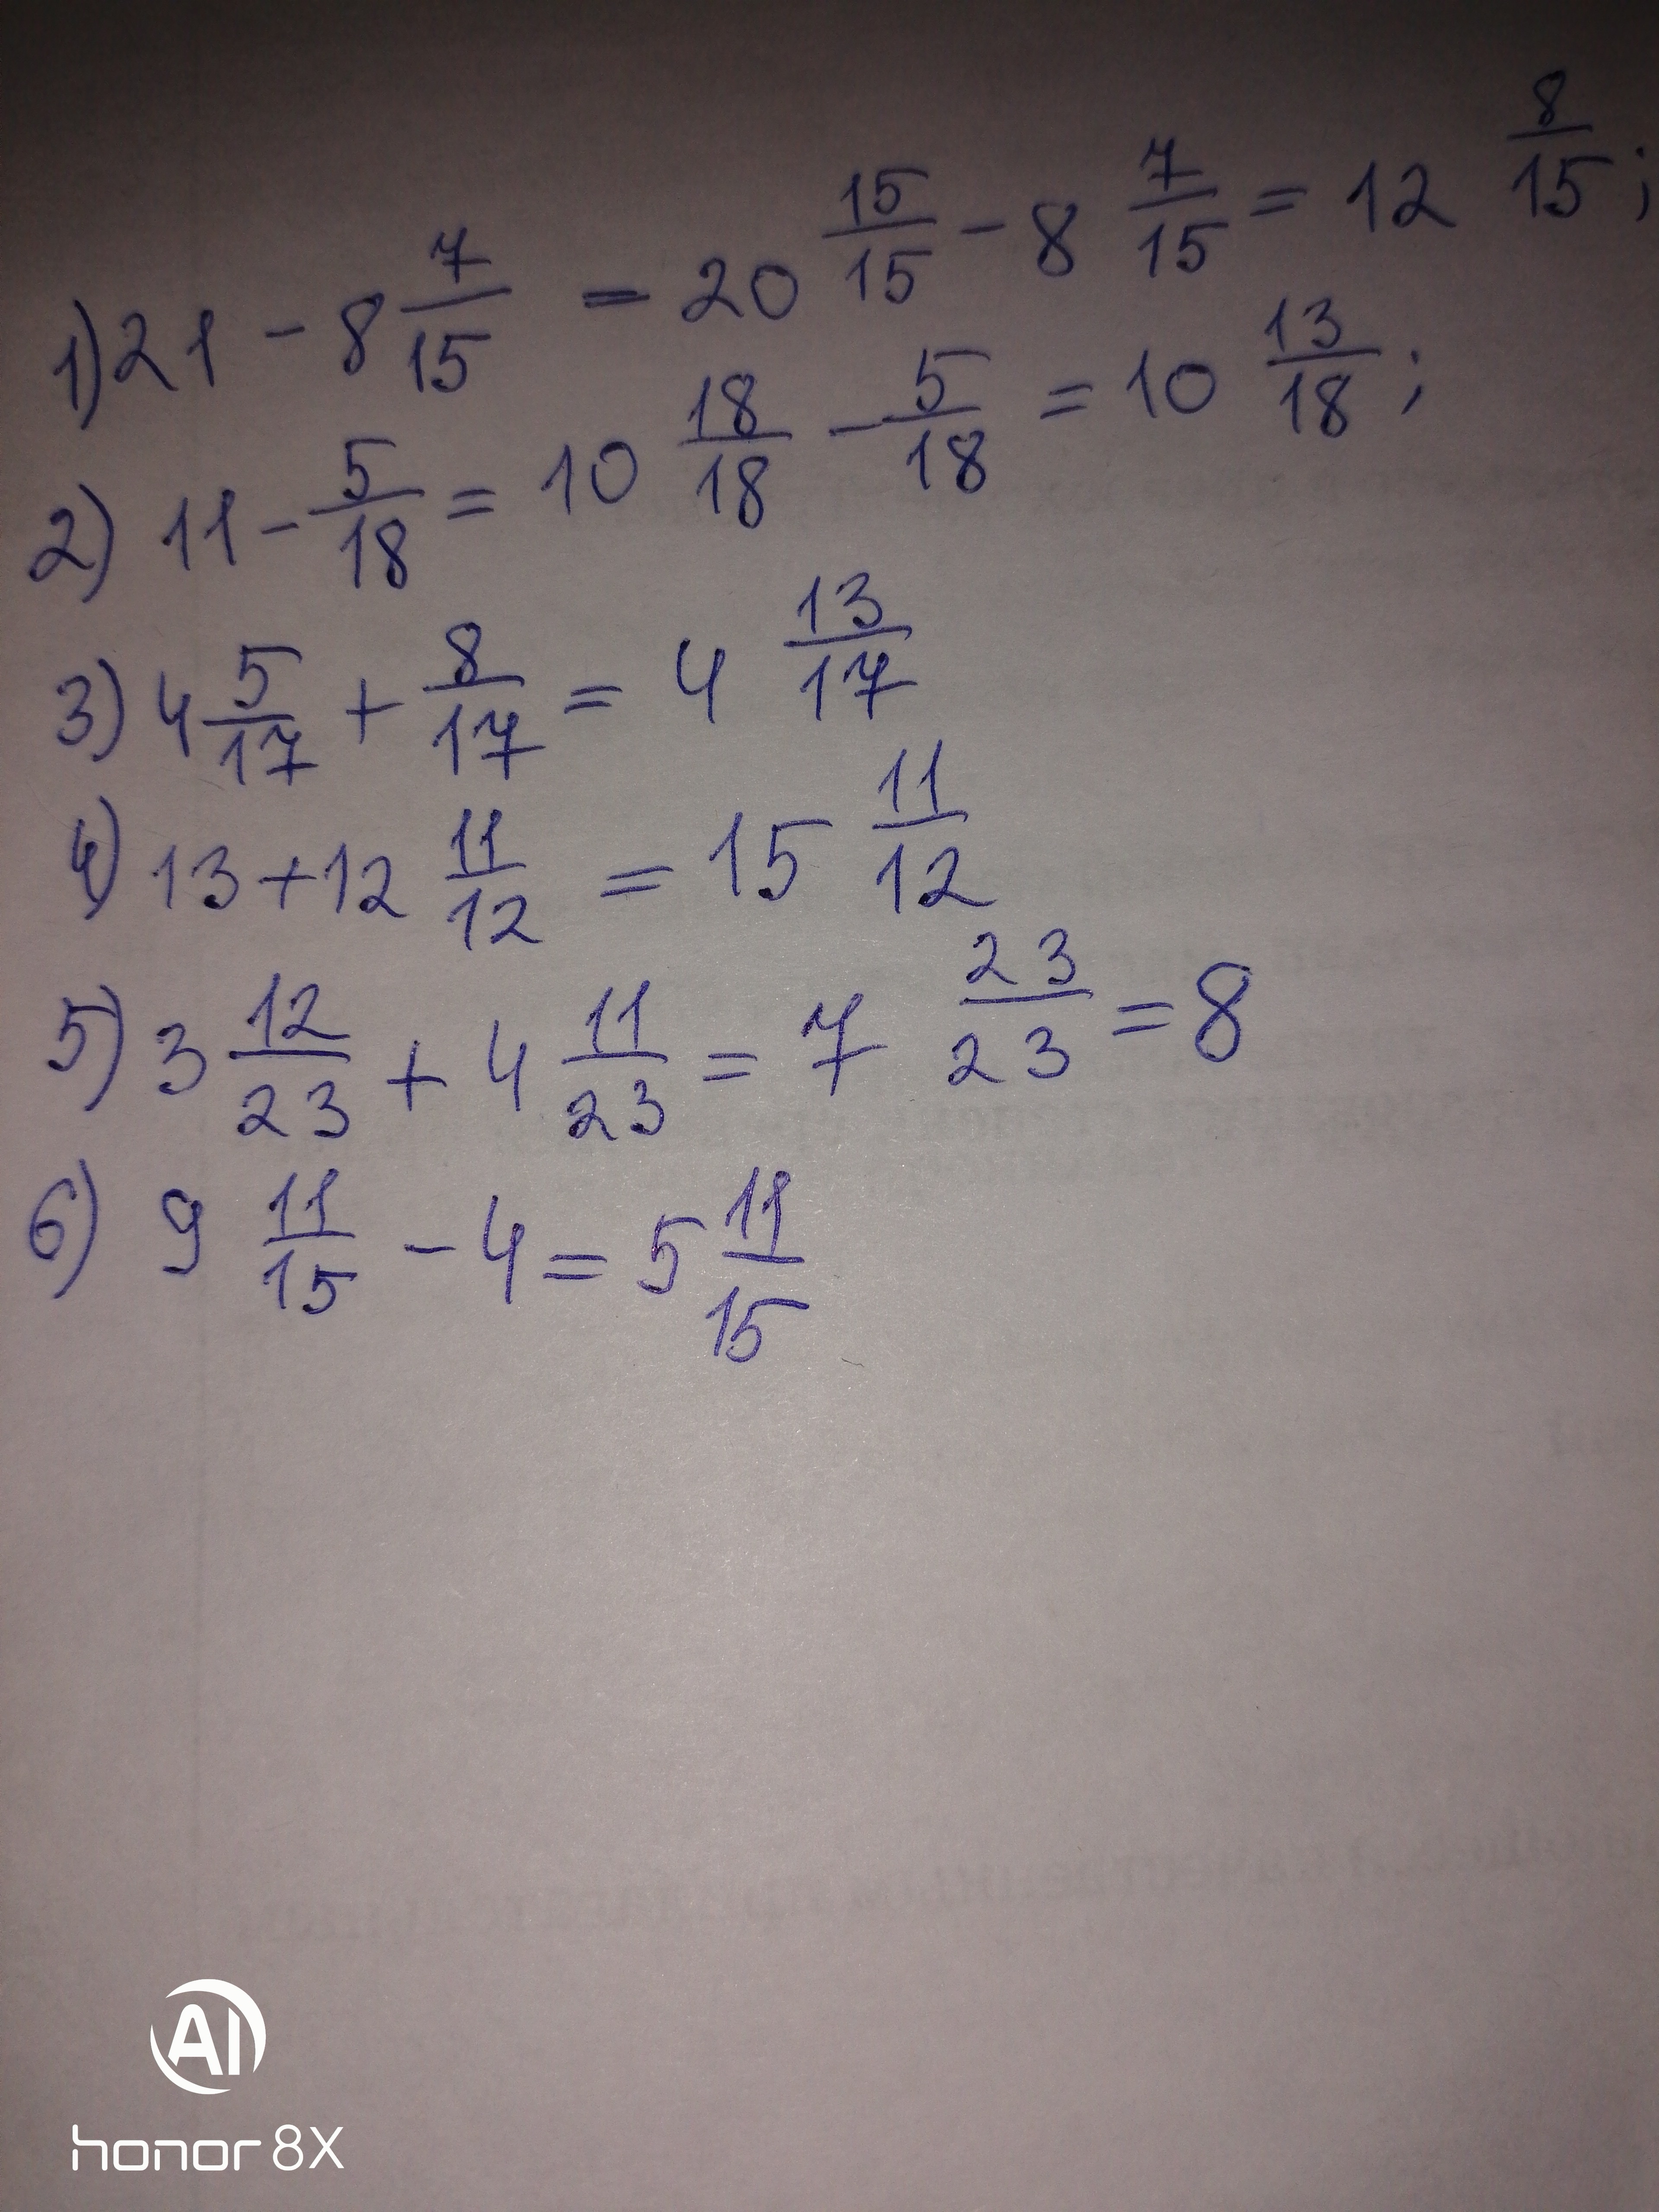 1) 21 - 8 7/15 = 20 15/15 - 8 7/15 = 12 8/15;
2) 11 - 5/18 = 10 18/18 - 5/18 = 10 13/18;
3) 4 5/17 + 8/17 = 4 13/17
4) 13 + 12 11/12 = 15 11/12
5) 3 12/23 + 4 11/23 = 7 23/23 = 8
6) 9 11/15 - 4 = 5 11/15
AI
honor 8X